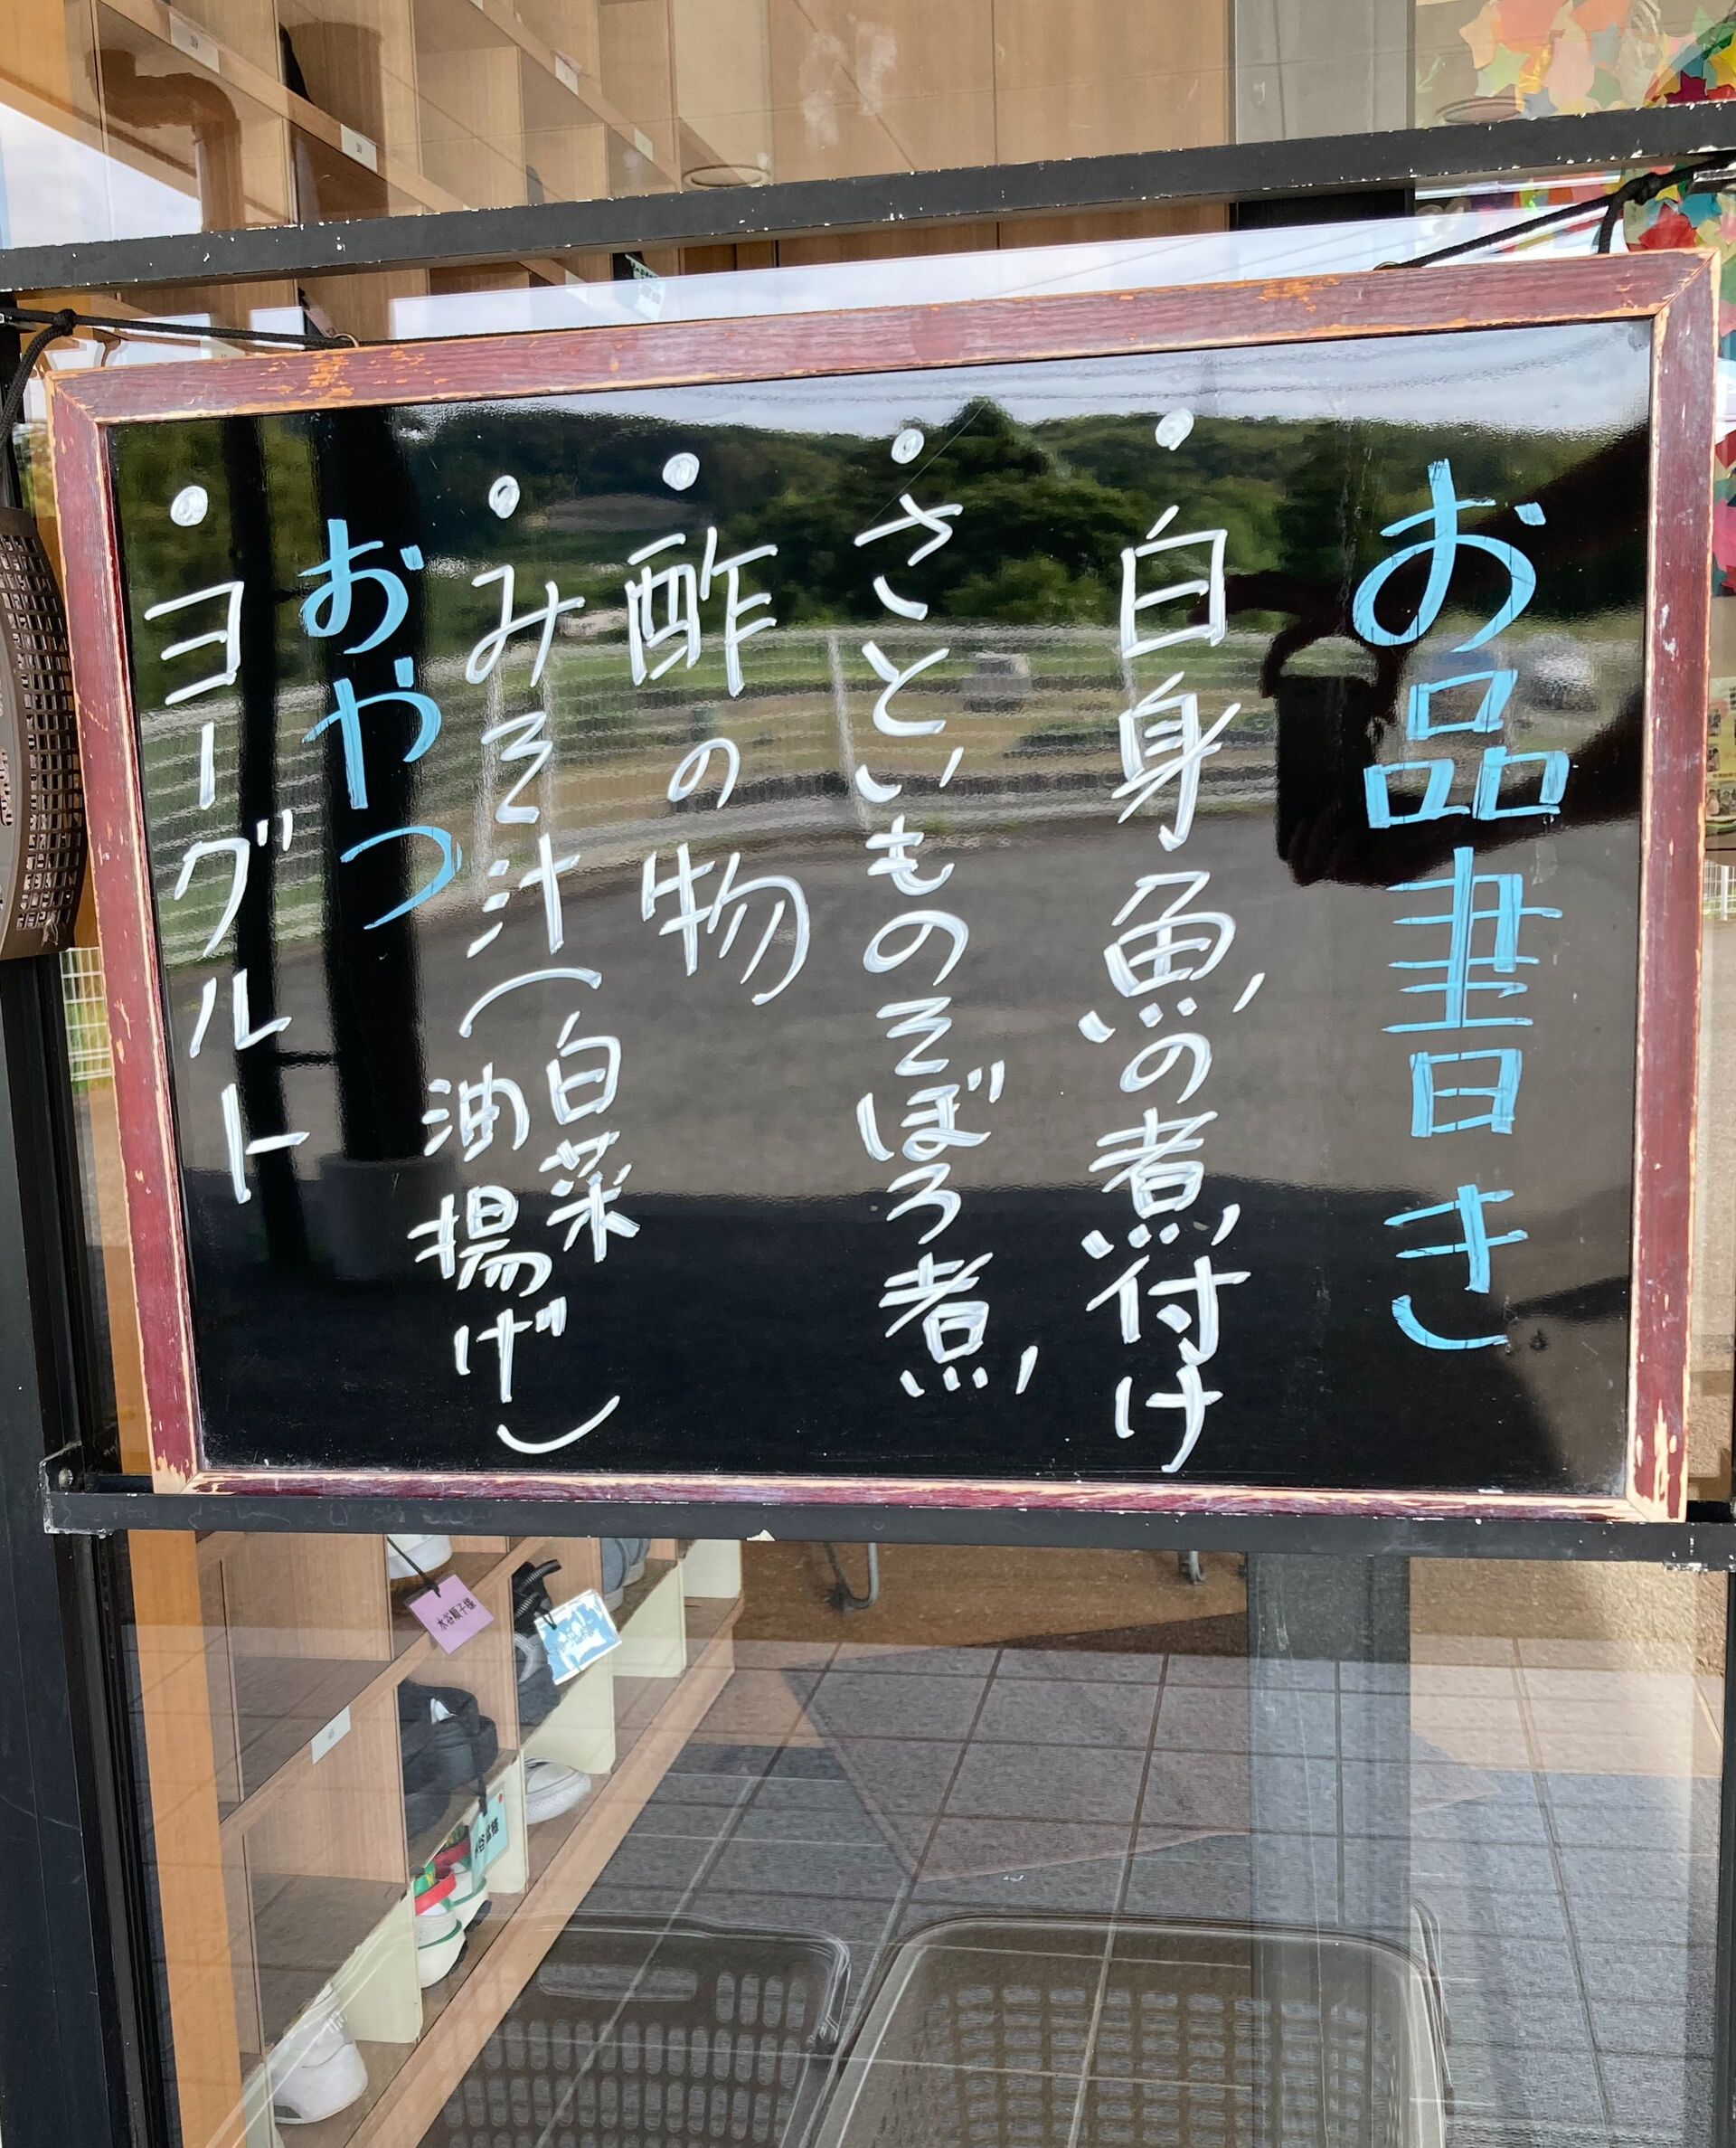 お品書き
・白身魚の煮付け
・さといものそぼろ煮
・酢の物
・みそ汁(白菜
油揚げ)
おやつ
・ヨーグルト